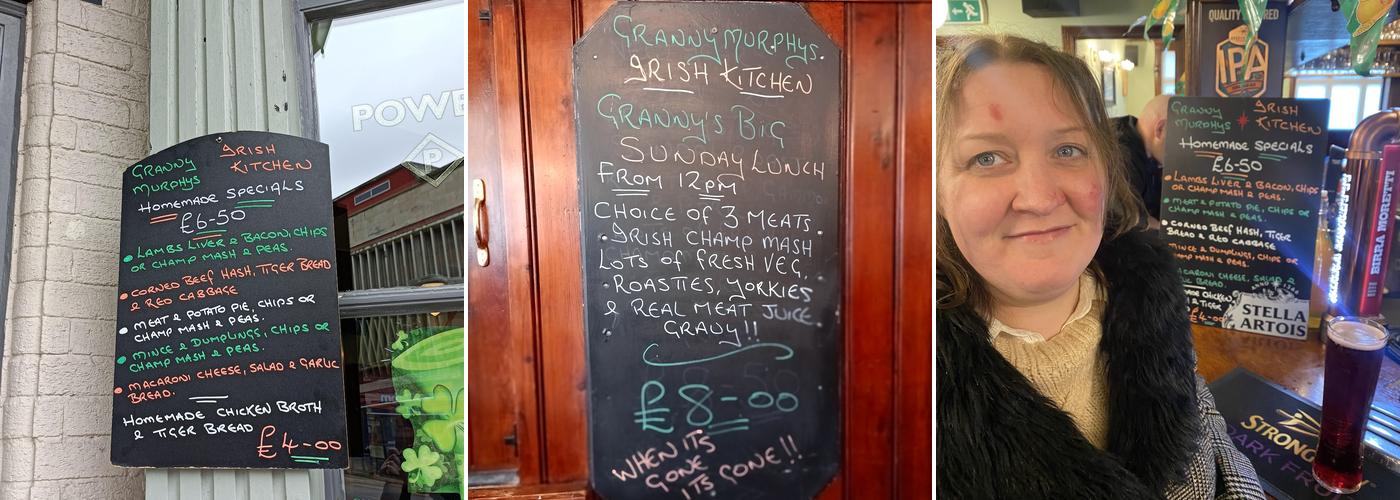 GRANNY MURPHYS
IRISH KITCHEN
HOMEMADE SPECIALS
£6-50
• LAMBS LIVER & BACON, CHIPS
OR CHAMP MASH & PEAS.
• CORNED BEEF HASH, TIGER BREAD
& RED CABBAGE
• MEAT & POTATO PIE, CHIPS OR
CHAMP MASH & PEAS.
• MINCE & DUMPLINGS, CHIPS OR
CHAMP MASH & PEAS.
• MACARONI CHEESE, SALAD & GARLIC
BREAD.
HOMEMADE CHICKEN BROTH
& TIGER BREAD
£4-00
POWE
P
GRANNY MURPHYS.
IRISH KITCHEN
GRANNY'S BIG
SUNDAY LUNCH
FROM 12PM
CHOICE OF 3 MEATS
• IRISH CHAMP MASH •
LOTS OF FRESH VEG,
• ROASTIES, YORKIES
& REAL MEAT JUICE •
GRAVY!!
£8-00
WHEN ITS
GONE
ITS GONE!!
QUALITY
IPA
GRANNY MURPHYS
IRISH KITCHEN
HOMEMADE SPECIALS
£6-50
• LAMBS LIVER & BACON, CHIPS
OR CHAMP MASH & PEAS.
• MEAT & POTATO PIE, CHIPS OR
CHAMP MASH & PEAS.
• CORNED BEEF HASH, TIGER
BREAD & RED CABBAGE
MINCE & DUMPLINGS, CHIPS OR
CHAMP MASH & PEAS.
MACARONI CHEESE, SALAD &
BREAD.
CHICKEN
& TIGER
£4-00
STELLA
ARTOIS
BIRRA MORETTI
STRONG
DARK FR